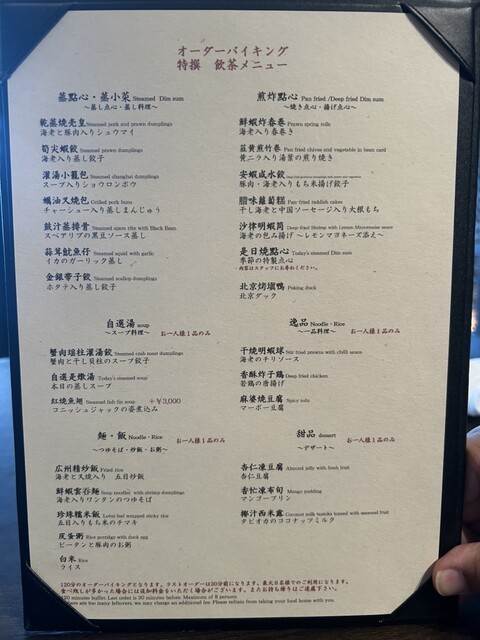 オーダーバイキング
特撰 飲茶メニュー
蒸點心・蒸小菜 Steamed Dim sum
～蒸し点心・蒸し料理～
乾蒸焼売皇 Steamed pork and prawn dumplings
海老と豚肉入りシュウマイ
筍尖蝦餃 Steamed prawn dumplings
海老入り蒸し餃子
灌湯小籠包 Steamed shanghai dumplings
スープ入りショウロンポウ
蠣油叉焼包 Grilled pork buns
チャーシュー入り蒸しまんじゅう
豉汁蒸排骨 Steamed spare ribs with Black Bean
スペアリブの黒豆ソース蒸し
蒜茸魷魚仔 Steamed squid with garlic
イカのガーリック蒸し
金銀帯子餃 Steamed scallop dumplings
ホタテ入り蒸し餃子
煎炸點心 Pan fried /Deep fried Dim sum
～焼き点心・揚げ点心～
鮮蝦炸春巻 Prawn spring rolls
海老入り春巻き
韮黄煎竹巻 Pan fried chives and vegetable in bean curd
黄ニラ入り湯葉の煎り焼き
安蝦咸水餃
豚肉・海老入りもち米揚げ餃子
腊味蘿蔔糕 Pan fried raddish cakes
干し海老と中国ソーセージ入り大根もち
沙律明蝦筒 Deep-fried Shrimp with Lemon Mayonnaise sauce
海老の包み揚げ ～レモンマヨネーズ添え～
是日焼點心 Today's steamed Dim sum
季節の特製点心
内容はスタッフにお尋ねください。
北京烤填鴨 Peking duck
北京ダック
自選湯 soup
～スープ料理～ お一人様1品のみ
蟹肉瑶柱灌湯餃 Steamed crab roast dumplings
蟹肉と干し貝柱のスープ餃子
自選是燉湯 Today's steamed soup
本日の蒸しスープ
紅焼魚翅 Steamed fish fin soup +￥3,000
コニッシュジャックの姿煮込み
逸品 Noodle・Rice
～一品料理～ お一人様1品のみ
干焼明蝦球 Stir fried prawns with chilli sauce
海老のチリソース
香酥炸子鶏 Deep fried chicken
若鶏の唐揚げ
麻婆焼豆腐 Spicy tofu
マーボー豆腐
麺・飯 Noodle・Rice
～つゆそば・炒飯・お粥～ お一人様1品のみ
広州精炒飯 Fried rice
海老と叉焼入り 五目炒飯
鮮蝦雲呑麺 Soup noodles with shrimp dumplings
海老入りワンタンのつゆそば
珍珠糯米飯 Lotus leaf wrapped sticky rice
五目入りもち米のチマキ
皮蛋粥 Rice porridge with duck egg
ピータンと豚肉のお粥
白米 Rice
ライス
甜品 dessert お一人様1品のみ
～デザート～
杏仁凍豆腐 Almond jelly with fresh fruit
杏仁豆腐
香忙凍布旬 Mango pudding
マンゴープリン
椰汁西米露 Coconut milk tapioka topped with seasonal fruit
タピオカのココナッツミルク
120分のオーダーバイキングとなります。ラストオーダーは30分前になります。最大8名様でのご利用になります。
食べ残しが多かった場合には追加料金をいただく場合がございます。またお持ち帰りはご遠慮下さい。
120 minutes buffet. Last order is 30 minutes before. Maximum of 8 persons
there are too many leftovers, we may charge an additional fee. Please refrain from taking your food home with you.